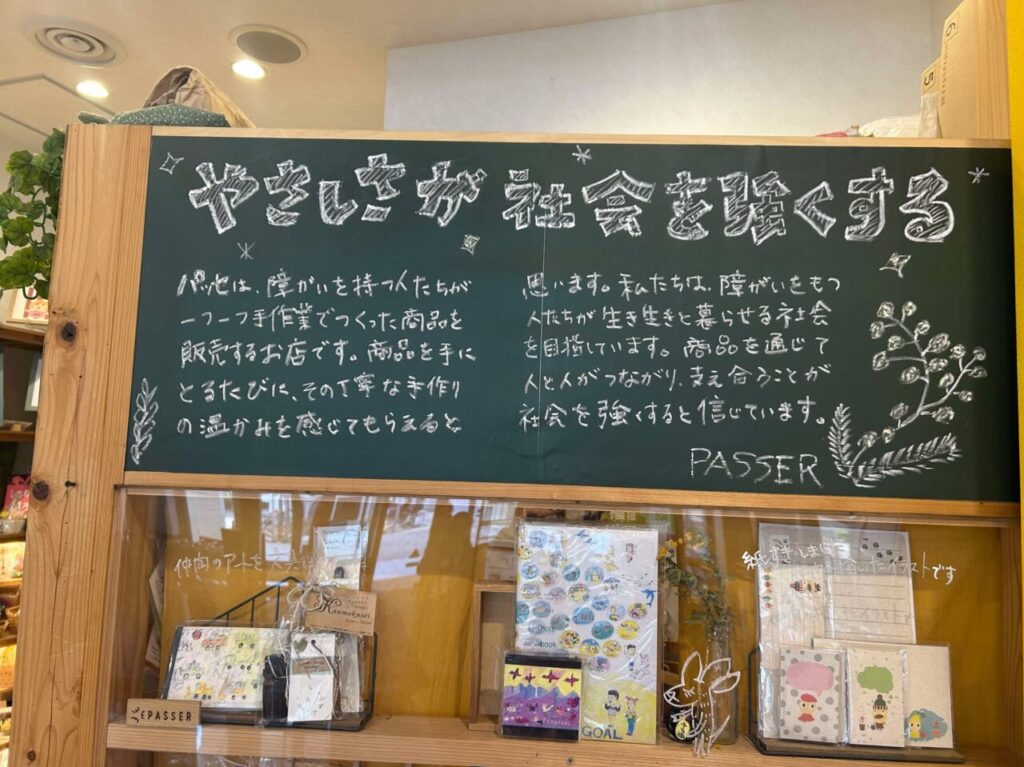 やさしさが 社会を強くする
パッセは、障がいを持つ人たちが
一つ一つ手作業でつくった商品を
販売するお店です。商品を手に
とるたびに、その丁寧な手作り
の温かみを感じてもらえると
思います。私たちは、障がいをもつ
人たちが生き生きと暮らせる社会
を目指しています。商品を通じて
人と人がつながり、支え合うことが
社会を強くすると信じています。
PASSER
仲間のアートを
紙すき
イラストです
Kinmokusei
book
GOAL
PASSER
5
6